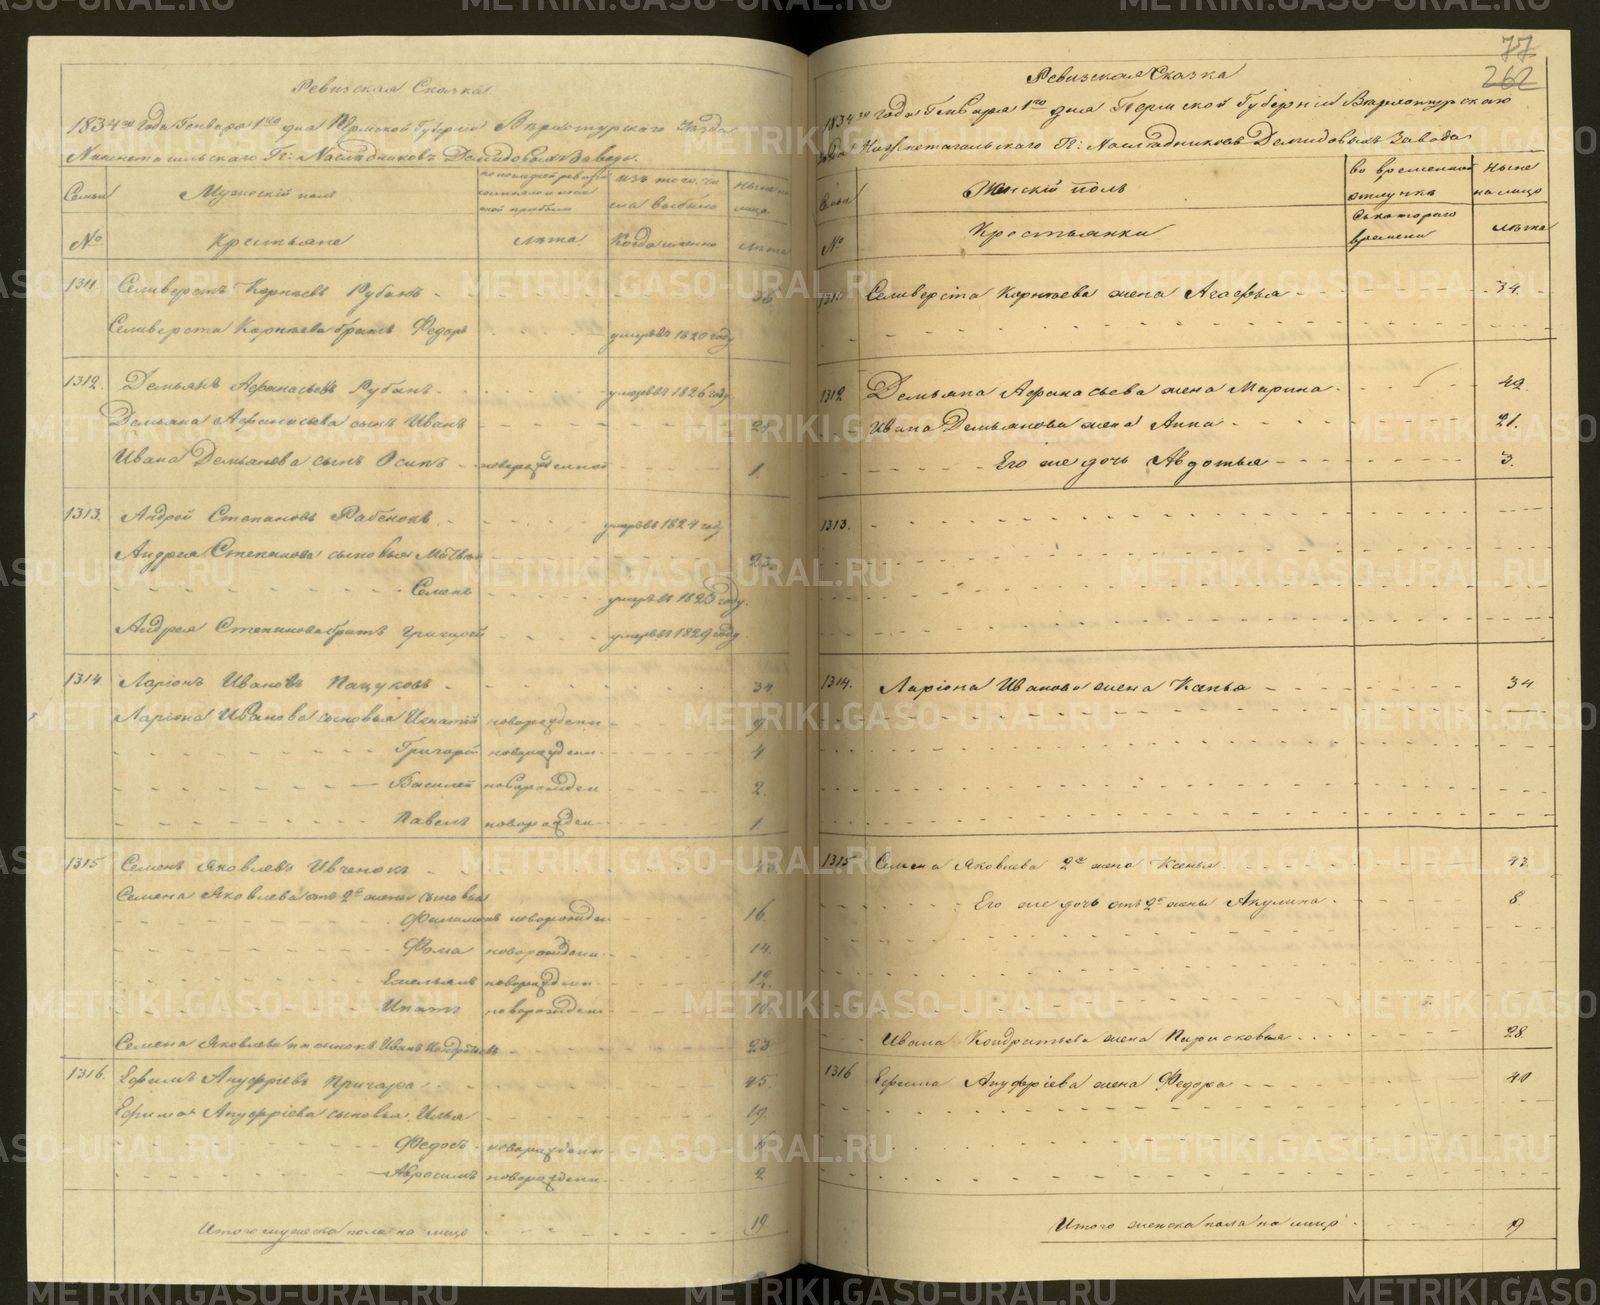 Ревизская Сказка
1834го Года Генваря 1го дня Пермской Губернии Верхотурского Уезда
Нижнетагильского Гг: Наследниковъ Демидовыхъ Завода.
Семьи Мужескiй полъ по последней ревизiи изъ того числа выбыло ныне на лицо
№ Крестьяне Лета Когда именно лета
1311. Селиверстъ Корнеевъ Рубанъ 38
Селиверста Корнеева братъ Федоръ умеръ въ 1820 году
1312. Демьянъ Афанасьевъ Рубанъ умеръ въ 1826 году
Демьяна Афанасьева сынъ Иванъ
Ивана Демьянова сынъ Осипъ новорожденной 1.
1313. Андрей Степановъ Рабенокъ умеръ въ 1824 году
Андрея Степанова сыновья Матвей 23.
Семенъ умеръ въ 1825 году.
Андрея Степанова братъ Григорей умеръ въ 1829 году
1314 Ларiонъ Ивановъ Пацуковъ 34
Ларiона Иванова сыновья Игнатiй новорожден 9
Григорiй новорожден 4
Василей новорожден 2.
Павелъ новорожден 1
1315 Семенъ Яковлевъ Ивченокъ
Семена Яковлева отъ 2й жены сыновья
Филимонъ новорожден 16.
Фома новорожден 14.
Емельянъ новорожден 12.
Ипатъ новорожден 10.
Семена Яковлева пасынокъ Иванъ Кондратьевъ 23
1316. Ефимъ Ануфрiевъ Пригара 45.
Ефима Ануфрiева сыновья Илья 19.
Федотъ новорожден 6
Авросимъ новорожден 2
Итого мужеска пола на лицо 19
77
262
Ревизская Сказка
1834го года Генваря 1го дня Пермской Губернiи Верхотурскаго
Нижнетагильскаго Гг: Наследниковъ Демидовыхъ Завода
Семьи Женскiй полъ во временной отлучке ныне на лицо
№ Крестьянки Съ котораго времени лета
1311 Селиверста Корнеева жена Агафья 34.
1312 Демьяна Афанасьева жена Марина 49.
Ивана Демьянова жена Анна 21.
Его же дочь Авдотья 3.
1313.
1314. Ларiона Иванова жена Ксенья 34
1315 Семена Яковлева 2я жена Ксенья 43.
Его же дочь отъ 2й жены Акулина 8
Ивана Кондратьева жена Парасковья 28.
1316 Ефима Ануфрiева жена Федора 40
Итого женска пола на лицо 9
METRIKI.GASO-URAL.RU